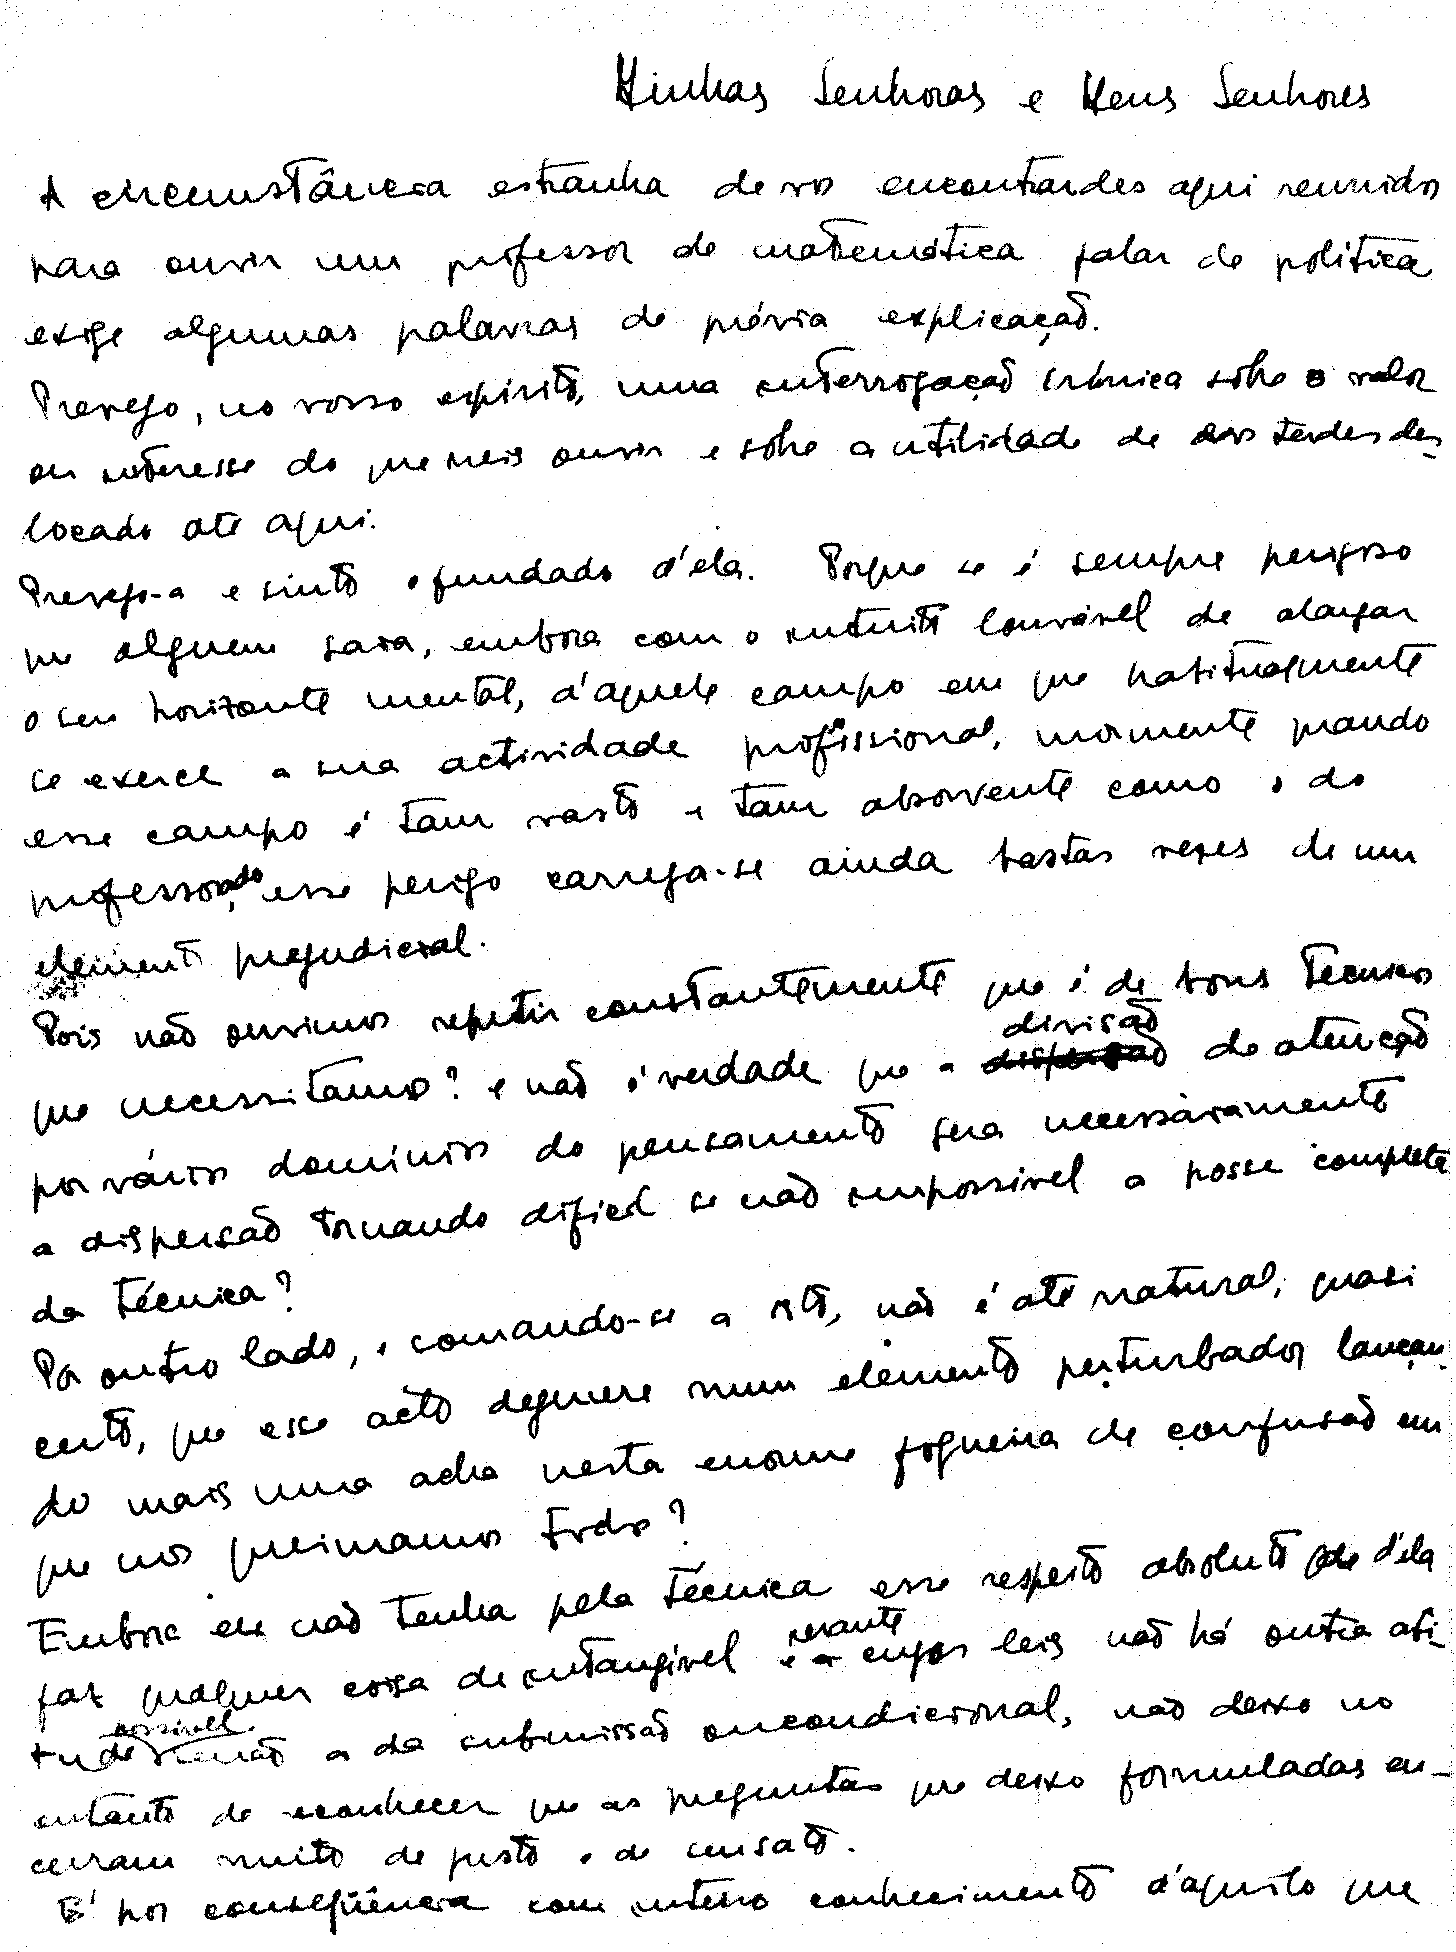 Minhas Senhoras e Meus Senhores
A circumstância estranha de vos encontrardes aqui reunidos
para ouvir um professor de matemática falar de política
exige algumas palavras de prévia explicação.
Prevejo, no vosso espírito, uma interrogação irónica sôbre o valor
ou interesse do que ireis ouvir e sôbre a utilidade de vos terdes des-
locado até aqui.
Prevejo-a e sinto o fundado d'ela. Porque se é sempre perigoso
que alguem saia, embora com o intuito louvável de alargar
o seu horizonte mental, d'aquele campo em que habitualmente
se exerce a sua actividade profissional, mormente quando
esse campo é tam vasto e tam absorvente como o do
professorado, esse perigo carrega-se ainda bastas vezes de um
elemento prejudicial.
Pois não ouvimos repetir constantemente que é de bons tecnicos
que necessitamos? e não é verdade que a divisão da atenção
por vários domínios do pensamento gera necessàriamente
a dispersão tornando dificil se não impossivel a posse completa
da técnica?
Por outro lado, e somando-se a isto, não é até natural, quasi
certo, que esse acto degenere num elemento perturbador lançan-
do mais uma acha nesta enorme fogueira de confusão em
que nos queimamos todos?
Embora eu não tenha pela técnica esse respeito absoluto que d'ela
faz qualquer coisa de intangivel e perante cujas leis não há outra ati-
tude possivel senão a da submissão incondicional, não deixo no
entanto de reconhecer que as preguntas que deixo formuladas en-
cerram muito de justo e de sensato.
E' por conseqüência com inteiro conhecimento d'aquilo que